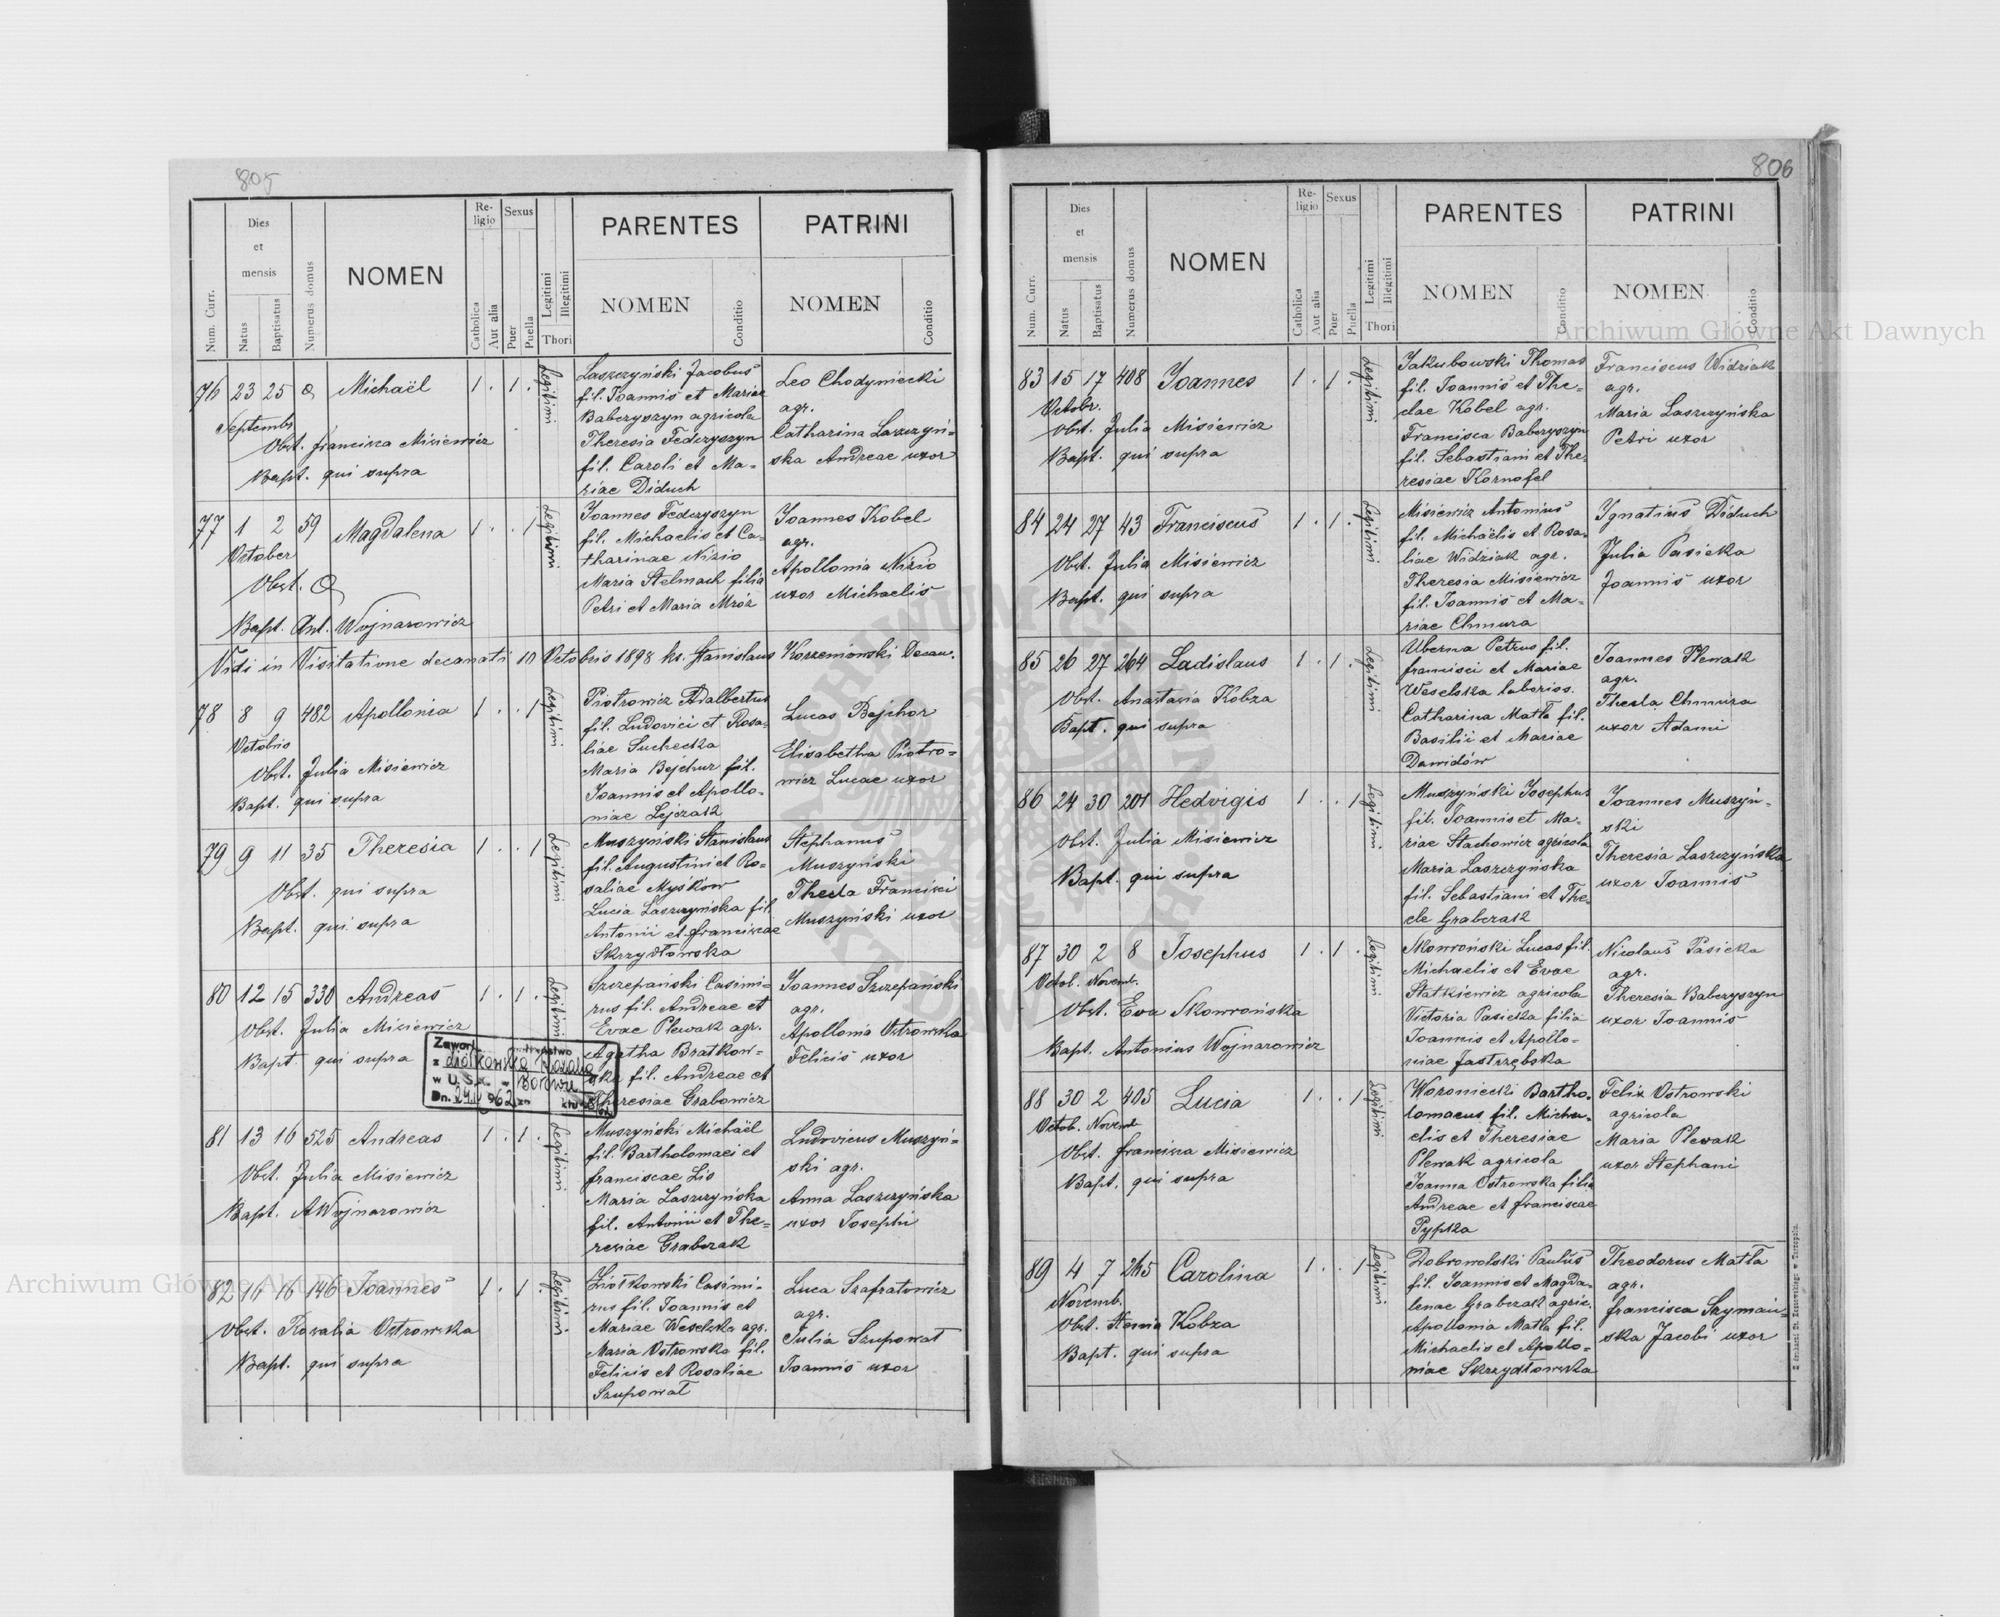 805
Num. Curr.
Dies et mensis
Natus
Baptisatus
Numerus domus
NOMEN
Religio
Catholica
Aut alia
Sexus
Puer
Puella
Legitimi
Illegitimi
Thori
PARENTES
NOMEN
Conditio
PATRINI
NOMEN
Conditio
76 23 25 Michaël 1 . 1 . Legitimi
Septembr
Obst. Francisca Misiewicz
Bapt. qui supra
Laszczyński Jacobus
fil. Joannis et Mariae
Baberzyszyn agricola
Theresia Fedczyszyn
fil. Caroli et Ma-
riae Diduch
Leo Chodyniecki
agr.
Catharina Laszczyń-
ska Andreae uxor
77 1 2 59 Magdalena 1 . . 1 Legitimi
October
Obst.
Bapt. Ant. Wojnarowicz
Joannes Fedczyszyn
fil. Michaelis et Ca-
tharinae Nizio
Maria Stelmach filia
Petri et Maria Mróz
Joannes Kobel
agr.
Apollonia Nizio
uxor Michaelis
Vidi in Visitatione decanati 10 Octobris 1898 ks. Stanislaus Korzeniowski Decan.
78 8 9 482 Apollonia 1 . . 1 Legitimi
Octobis
Obst. Julia Misiewicz
Bapt. qui supra
Piotrowicz Adalbertus
fil. Ludovici et Rosa-
liae Suchecka
Maria Bejchur fil.
Joannis et Apollo-
niae Lejczak
Lucas Bejchor
Elisabetha Piotro-
wicz Lucae uxor
79 9 11 35 Theresia 1 . . 1 Legitimi
Obst. qui supra
Bapt. qui supra
Muszyński Stanislaus
fil. Augustini et Ro-
saliae Myśków
Lucia Laszczyńska fil.
Antonii et Franciscae
Skrzydłowska
Stephanus
Muszyński
Thecla Francisci
Muszyński uxor
80 12 15 330 Andreas 1 . 1 . Legitimi
Obst. Julia Misiewicz
Bapt. qui supra
Szczepański Casimi-
rus fil. Andreae et
Evae Plewak agr.
Agatha Bratkow-
ska fil. Andreae et
Theresiae Grabowicz
Joannes Szczepański
agr.
Apollonia Ostrowska
Felicis uxor
81 13 16 525 Andreas 1 . 1 . Legitimi
Obst. Julia Misiewicz
Bapt. AWojnarowicz
Muszyński Michaël
fil. Bartholomaei et
Franciscae Lis
Maria Laszczyńska
fil. Antonii et The-
resiae Grabczak
Ludovicus Muszyń-
ski agr.
Anna Laszczyńska
uxor Josephi
82 16 146 Joannes 1 . 1 . Legitimi
Obst. Rosalia Ostrowska
Bapt. qui supra
Ziółkowski Casimi-
rus fil. Joannis et
Mariae Weselska agr.
Maria Ostrowska fil.
Felicis et Rosaliae
Szupował
Luca Szafratowicz
agr.
Julia Szupował
Joannis uxor
806
Num. Curr.
Dies et mensis
Natus
Baptisatus
Numerus domus
NOMEN
Religio
Catholica
Aut alia
Sexus
Puer
Puella
Legitimi
Illegitimi
Thori
PARENTES
NOMEN
Conditio
PATRINI
NOMEN
Conditio
83 15 17 408 Joannes 1 . 1 . Legitimi
Octobr.
Obst. Julia Misiewicz
Bapt. qui supra
Jakubowski Thomas
fil. Joannis et The-
clae Kobel agr.
Francisca Baberzyszyn
fil. Sebastiani et The-
resiae Kornafel
Franciscus Widziak
agr.
Maria Laszczyńska
Petri uxor
84 24 27 43 Franciscus 1 . 1 . Legitimi
Obst. Julia Misiewicz
Bapt. qui supra
Misiewicz Antonius
fil. Michaëlis et Rosa-
liae Widziak agr.
Theresia Misiewicz
fil. Joannis et Ma-
riae Chmura
Ygnatius Diduch
Julia Pasieka
Joannis uxor
85 26 27 264 Ladislaus 1 . 1 . Legitimi
Obst. Anastasia Kobza
Bapt. qui supra
Uberna Petrus fil.
Francisci et Mariae
Weselska laborios.
Catharina Matła fil.
Basilii et Mariae
Dawidów
Joannes Plewak
agr.
Thecla Chmura
uxor Adami
86 24 30 201 Hedvigis 1 . . 1 Legitimi
Obst. Julia Misiewicz
Bapt. qui supra
Muszyński Josephus
fil. Joannis et Ma-
riae Stachowicz agricola
Maria Laszczyńska
fil. Sebastiani et The-
cle Grabczak
Joannes Muszyń-
ski
Theresia Laszczyńska
uxor Joannis
87 30 2 8 Josephus 1 . 1 . Legitimi
Octob. Novemb.
Obst. Eva Skowrońska
Bapt. Antonius Wojnarowicz
Skowroński Lucas fil.
Michaelis et Evae
Statkiewicz agricola
Victoria Pasieka filia
Joannis et Apollo-
niae Jastrzębska
Nicolaus Pasieka
agr.
Theresia Baberzyszyn
uxor Joannis
88 30 2 405 Lucia 1 . . 1 Legitimi
Octob. Novemb
Obst. Francisca Misiewicz
Bapt. qui supra
Woroniecki Bartho-
lomaeus fil. Micha-
elis et Theresiae
Plewak agricola
Joanna Ostrowska filia
Andreae et Franciscae
Pypka
Felix Ostrowski
agricola
Maria Plewak
uxor Stephani
89 4 7 265 Carolina 1 . . 1 Legitimi
Novemb.
Obst. Kobza
Bapt. qui supra
Dobrowolski Paulus
fil. Joannis et Magda-
lenae Grabczak agric.
Apollonia Matła fil.
Michaelis et Apollo-
niae Skrzydłowska
Theodorus Matła
agr.
Francisca Szymań-
ska Jacobi uxor
Archiwum Główne Akt Dawnych
Archiwum Główne Akt Dawnych